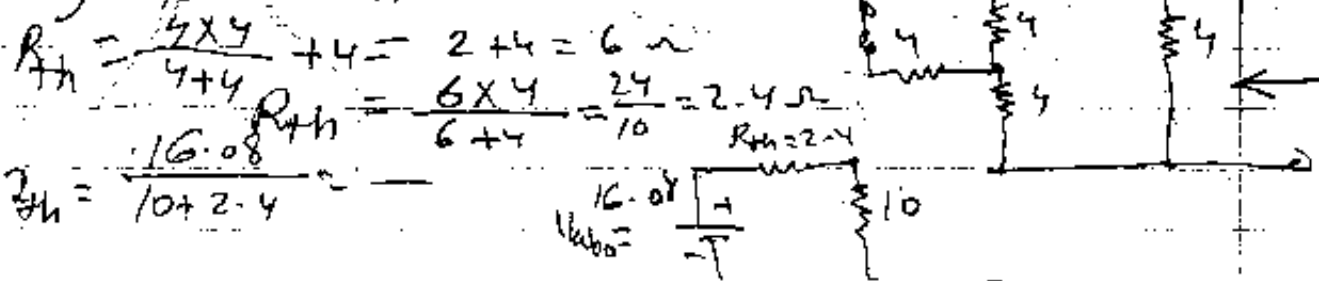 Rth = 4x4 / 4+4 + 4 = 2 + 4 = 6 Ω
Rth = 6 x 4 / 6 + 4 = 24 / 10 = 2.4 Ω
= 16.08 / 10 + 2.4 = —
4
4
4
4
Rth = 2.4
16.08
+
-
10